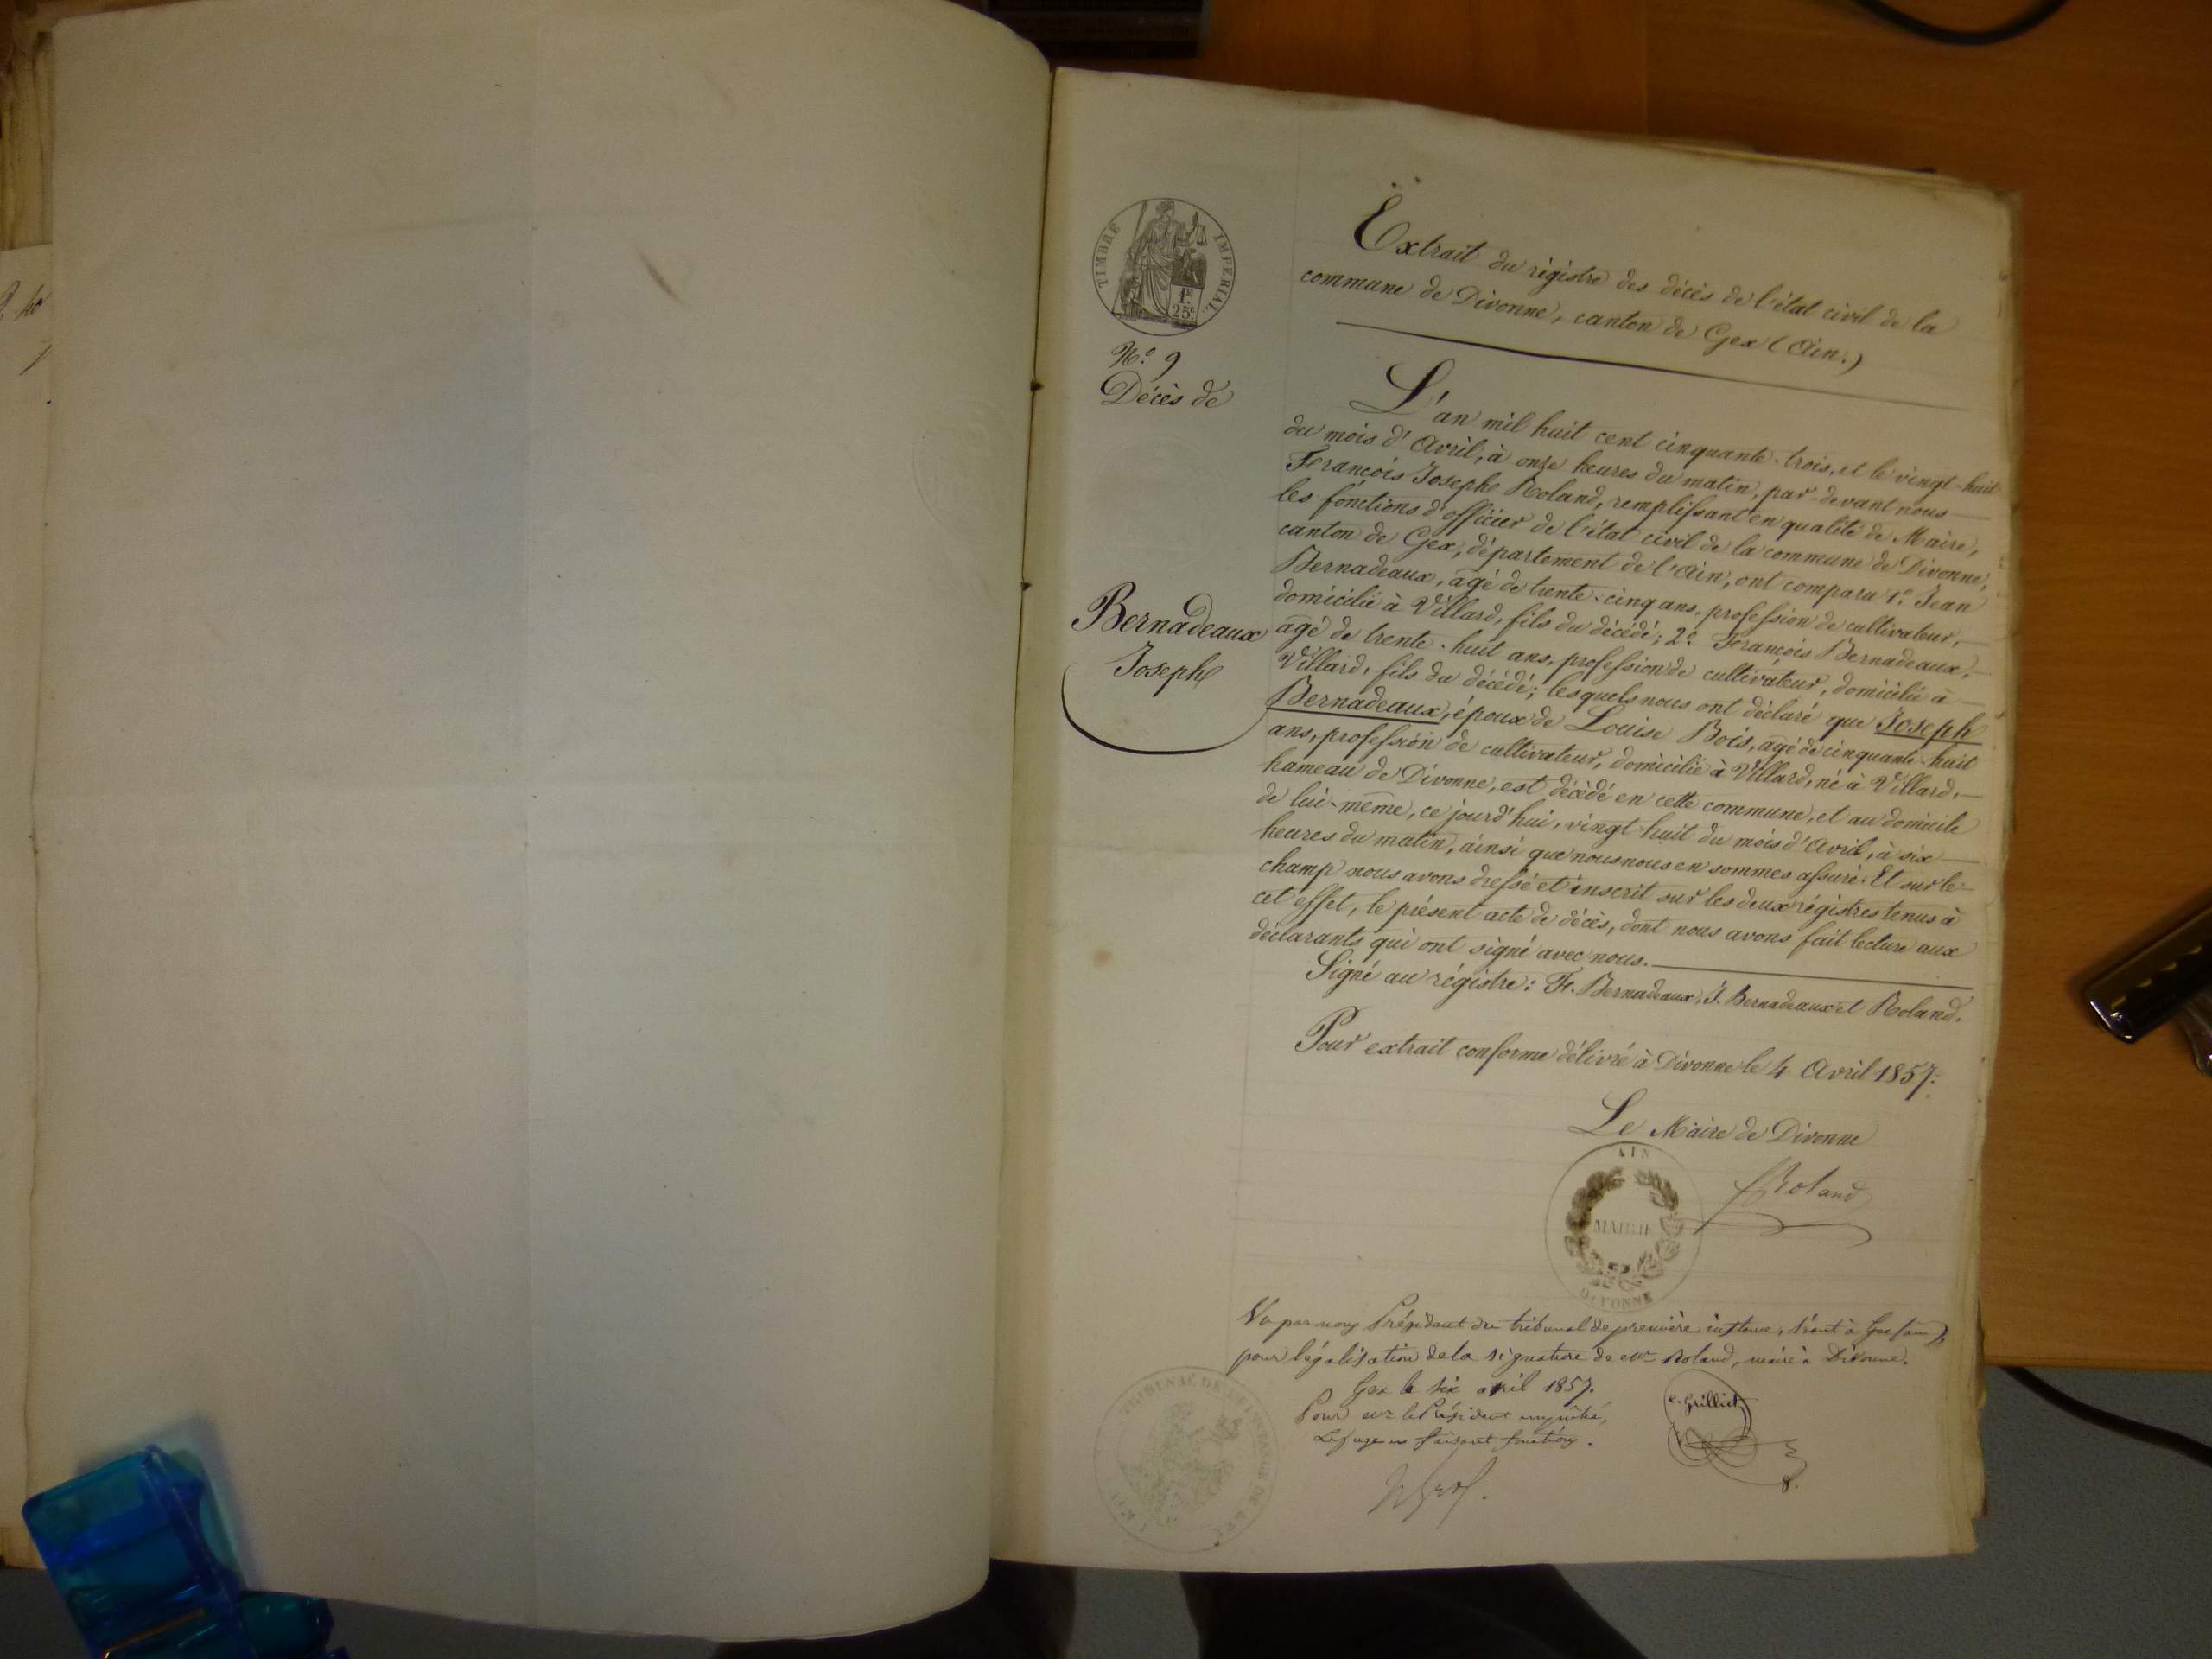 TIMBRE IMPÉRIAL
1F.
25c.
N.º 9
Décès de
Bernadeaux
Joseph
Extrait du régistre des décès de l'état civil de la
commune de Divonne, canton de Gex (Ain.)
L'an mil huit cent cinquante-trois, et le vingt-huit
du mois d'Avril, à onze heures du matin, par-devant nous
François Joseph Roland, remplissant en qualité de Maire,
les fonctions d'officier de l'état civil de la commune de Divonne,
canton de Gex, département de l'Ain, ont comparu 1º. Jean
Bernadeaux, agé de trente-cinq ans, profession de cultivateur,
domicilié à Villard, fils du décédé; 2º. François Bernadeaux,
agé de trente-huit ans, profession de cultivateur, domicilié à
Villard, fils du décédé; lesquels nous ont déclaré que Joseph
Bernadeaux, époux de Louise Bois, agé de cinquante-huit
ans, profession de cultivateur, domicilié à Villard, né à Villard,
hameau de Divonne, est décédé en cette commune, et au domicile
de lui-même, ce jourd'hui, vingt-huit du mois d'Avril, à six
heures du matin, ainsi que nous nous en sommes assuré. Et sur le-
champ nous avons dressé et inscrit sur les deux régistres tenus à
cet effet, le présent acte de décès, dont nous avons fait lecture aux
déclarants qui ont signé avec nous.
Signé au régistre: F. Bernadeaux, J. Bernadeaux et Roland.
Pour extrait conforme délivré à Divonne le 4 Avril 1857.
Le Maire de Divonne
Roland
AIN
MAIRIE
DIVONNE
Vu par nous Président du tribunal de première instance, séant à Gex (ain),
pour légalisation de la signature de Mr Roland, maire à Divonne.
Gex le six avril 1857.
Pour Mr le Président empêché,
Le juge en faisant fonctions.
C. Grilliet
TRIBUNAL DE 1RE INSTANCE DE GEX